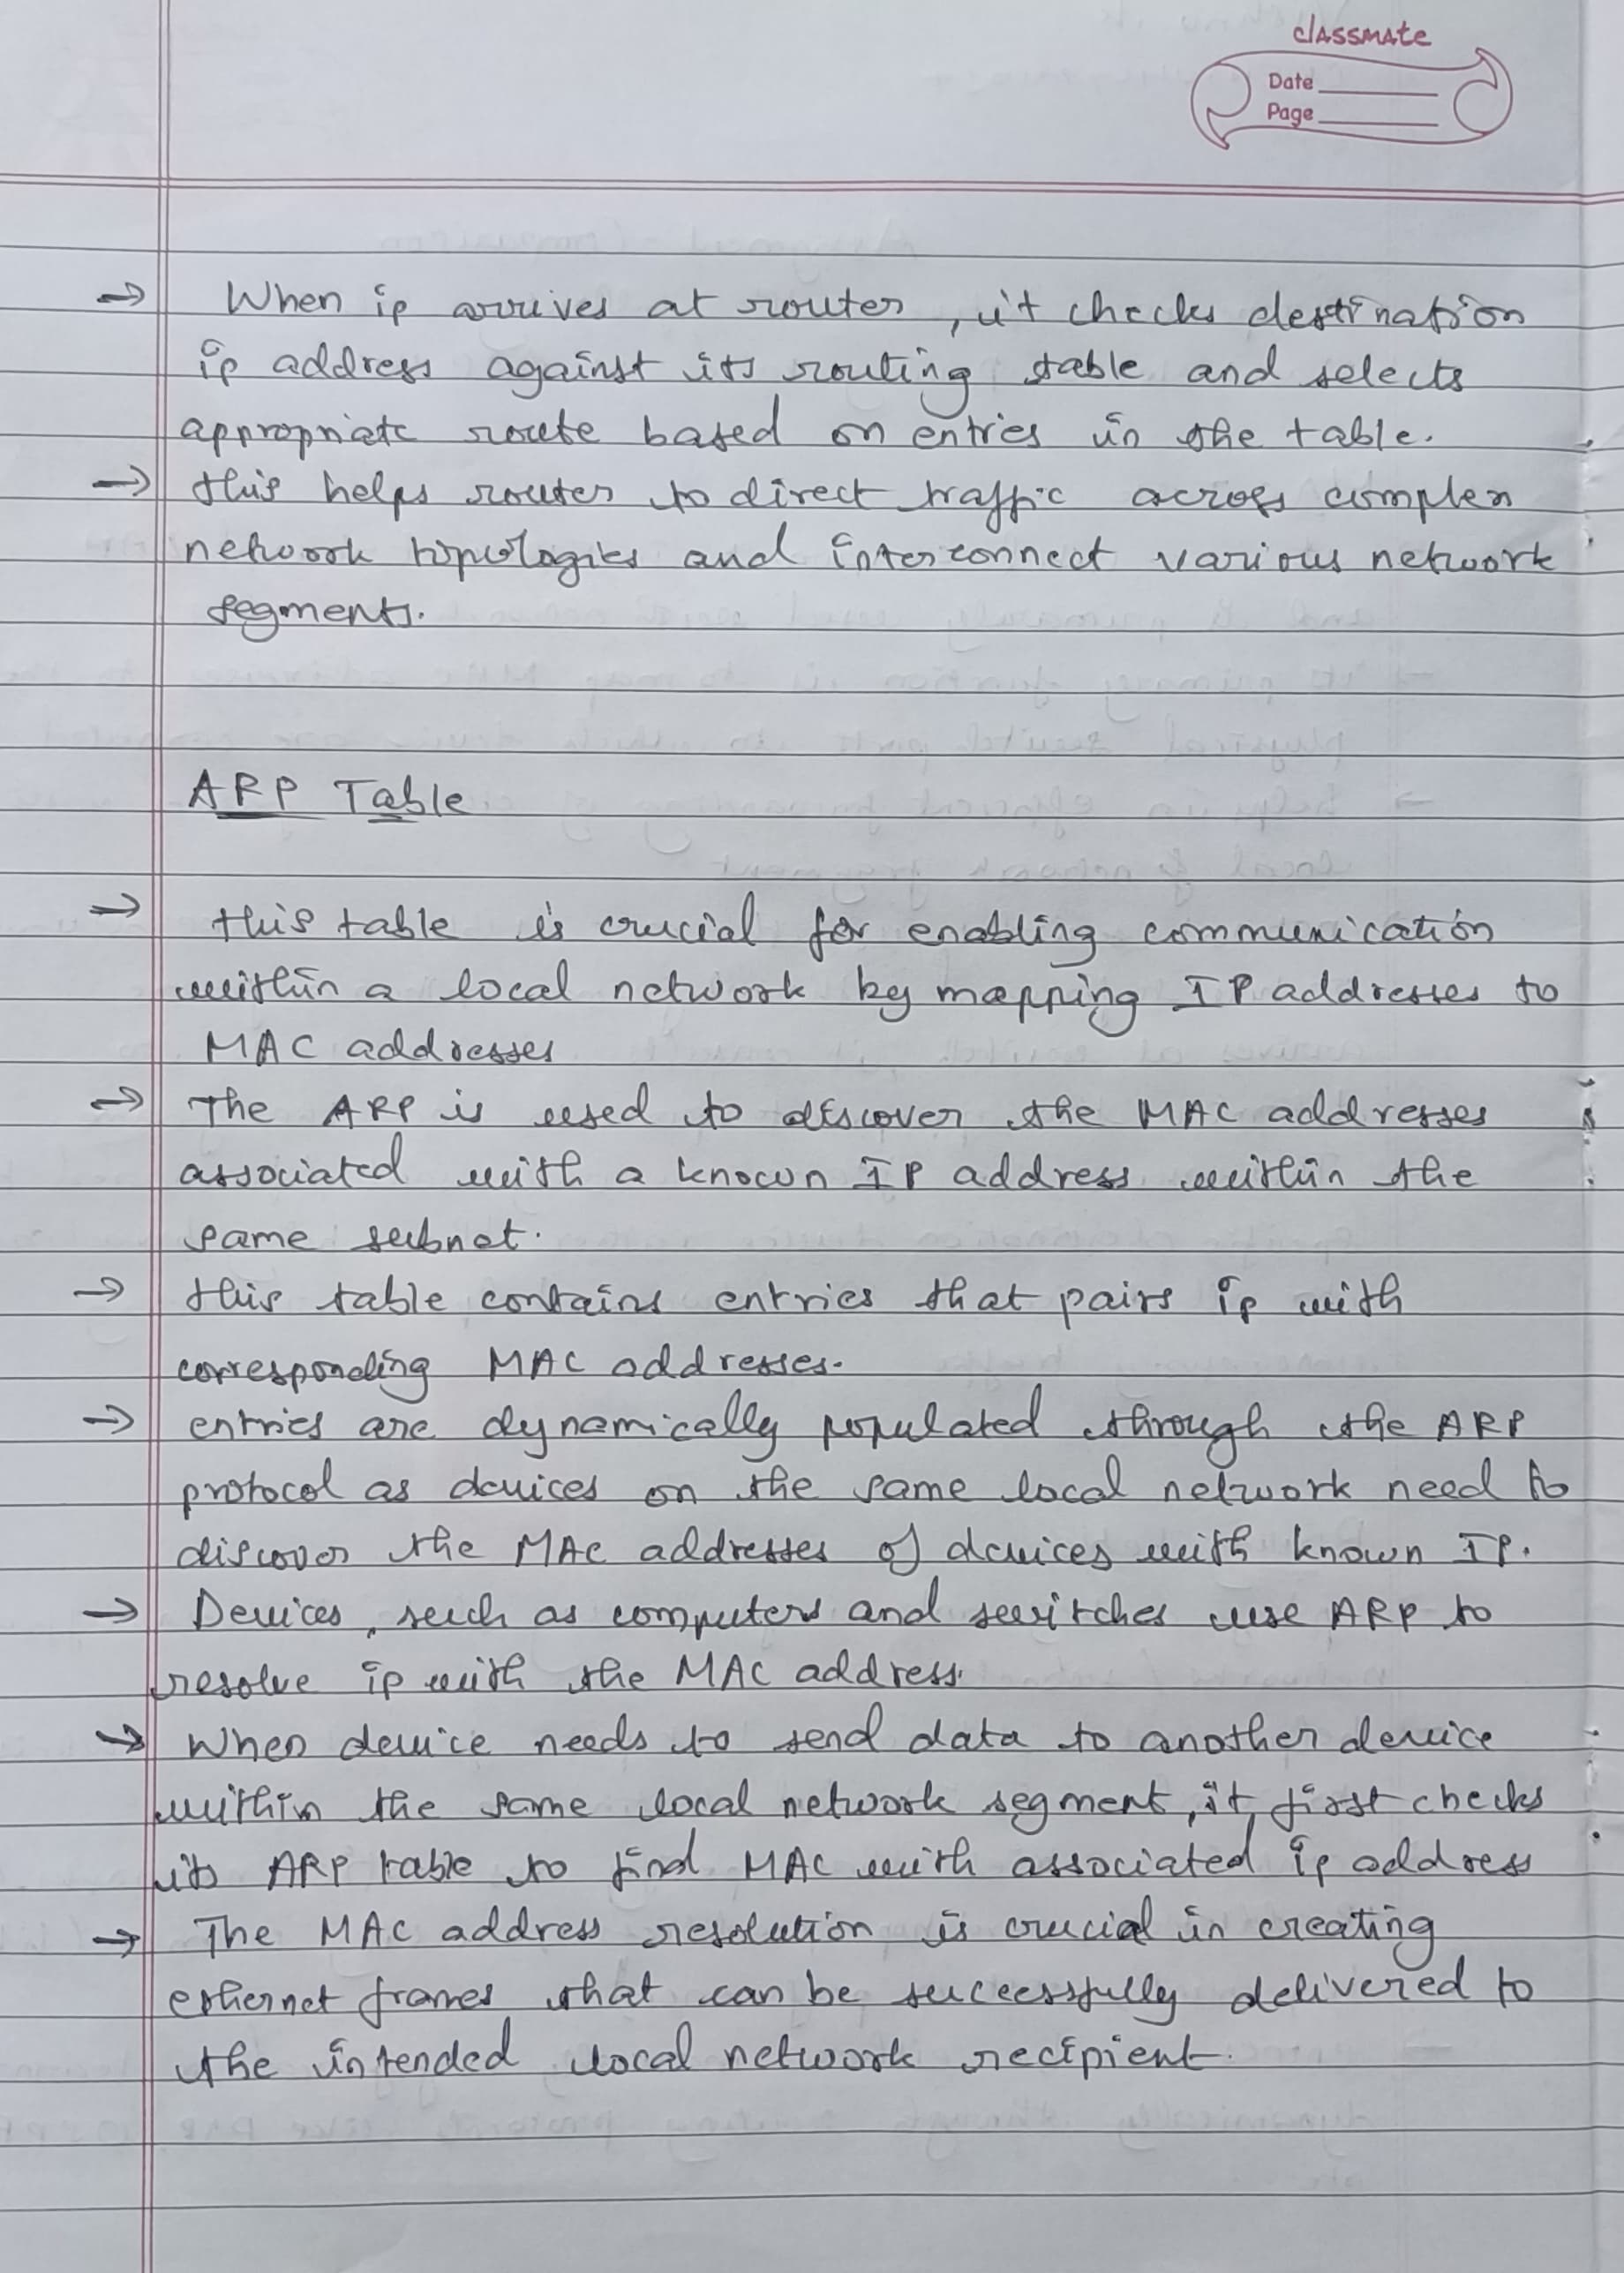 classmate
Date
Page
→ When ip arrives at router, it checks destination
ip address against its routing table and selects
appropriate route based on entries in the table.
→ this helps router to direct traffic across complex
network topologies and interconnect various network
segments.
ARP Table
→ this table is crucial for enabling communication
within a local network by mapping IP addresses to
MAC addresses
→ The ARP is used to discover the MAC addresses
associated with a known IP address within the
same subnet.
→ this table contains entries that pairs ip with
corresponding MAC addresses.
→ entries are dynamically populated through the ARP
protocol as devices on the same local network need to
discover the MAC addresses of devices with known IP.
→ Devices, such as computers and switches use ARP to
resolve ip with the MAC address.
→ When device needs to send data to another device
within the same local network segment, it first checks
its ARP table to find MAC with associated ip address
→ The MAC address resolution is crucial in creating
ethernet frames that can be successfully delivered to
the intended local network recipient.